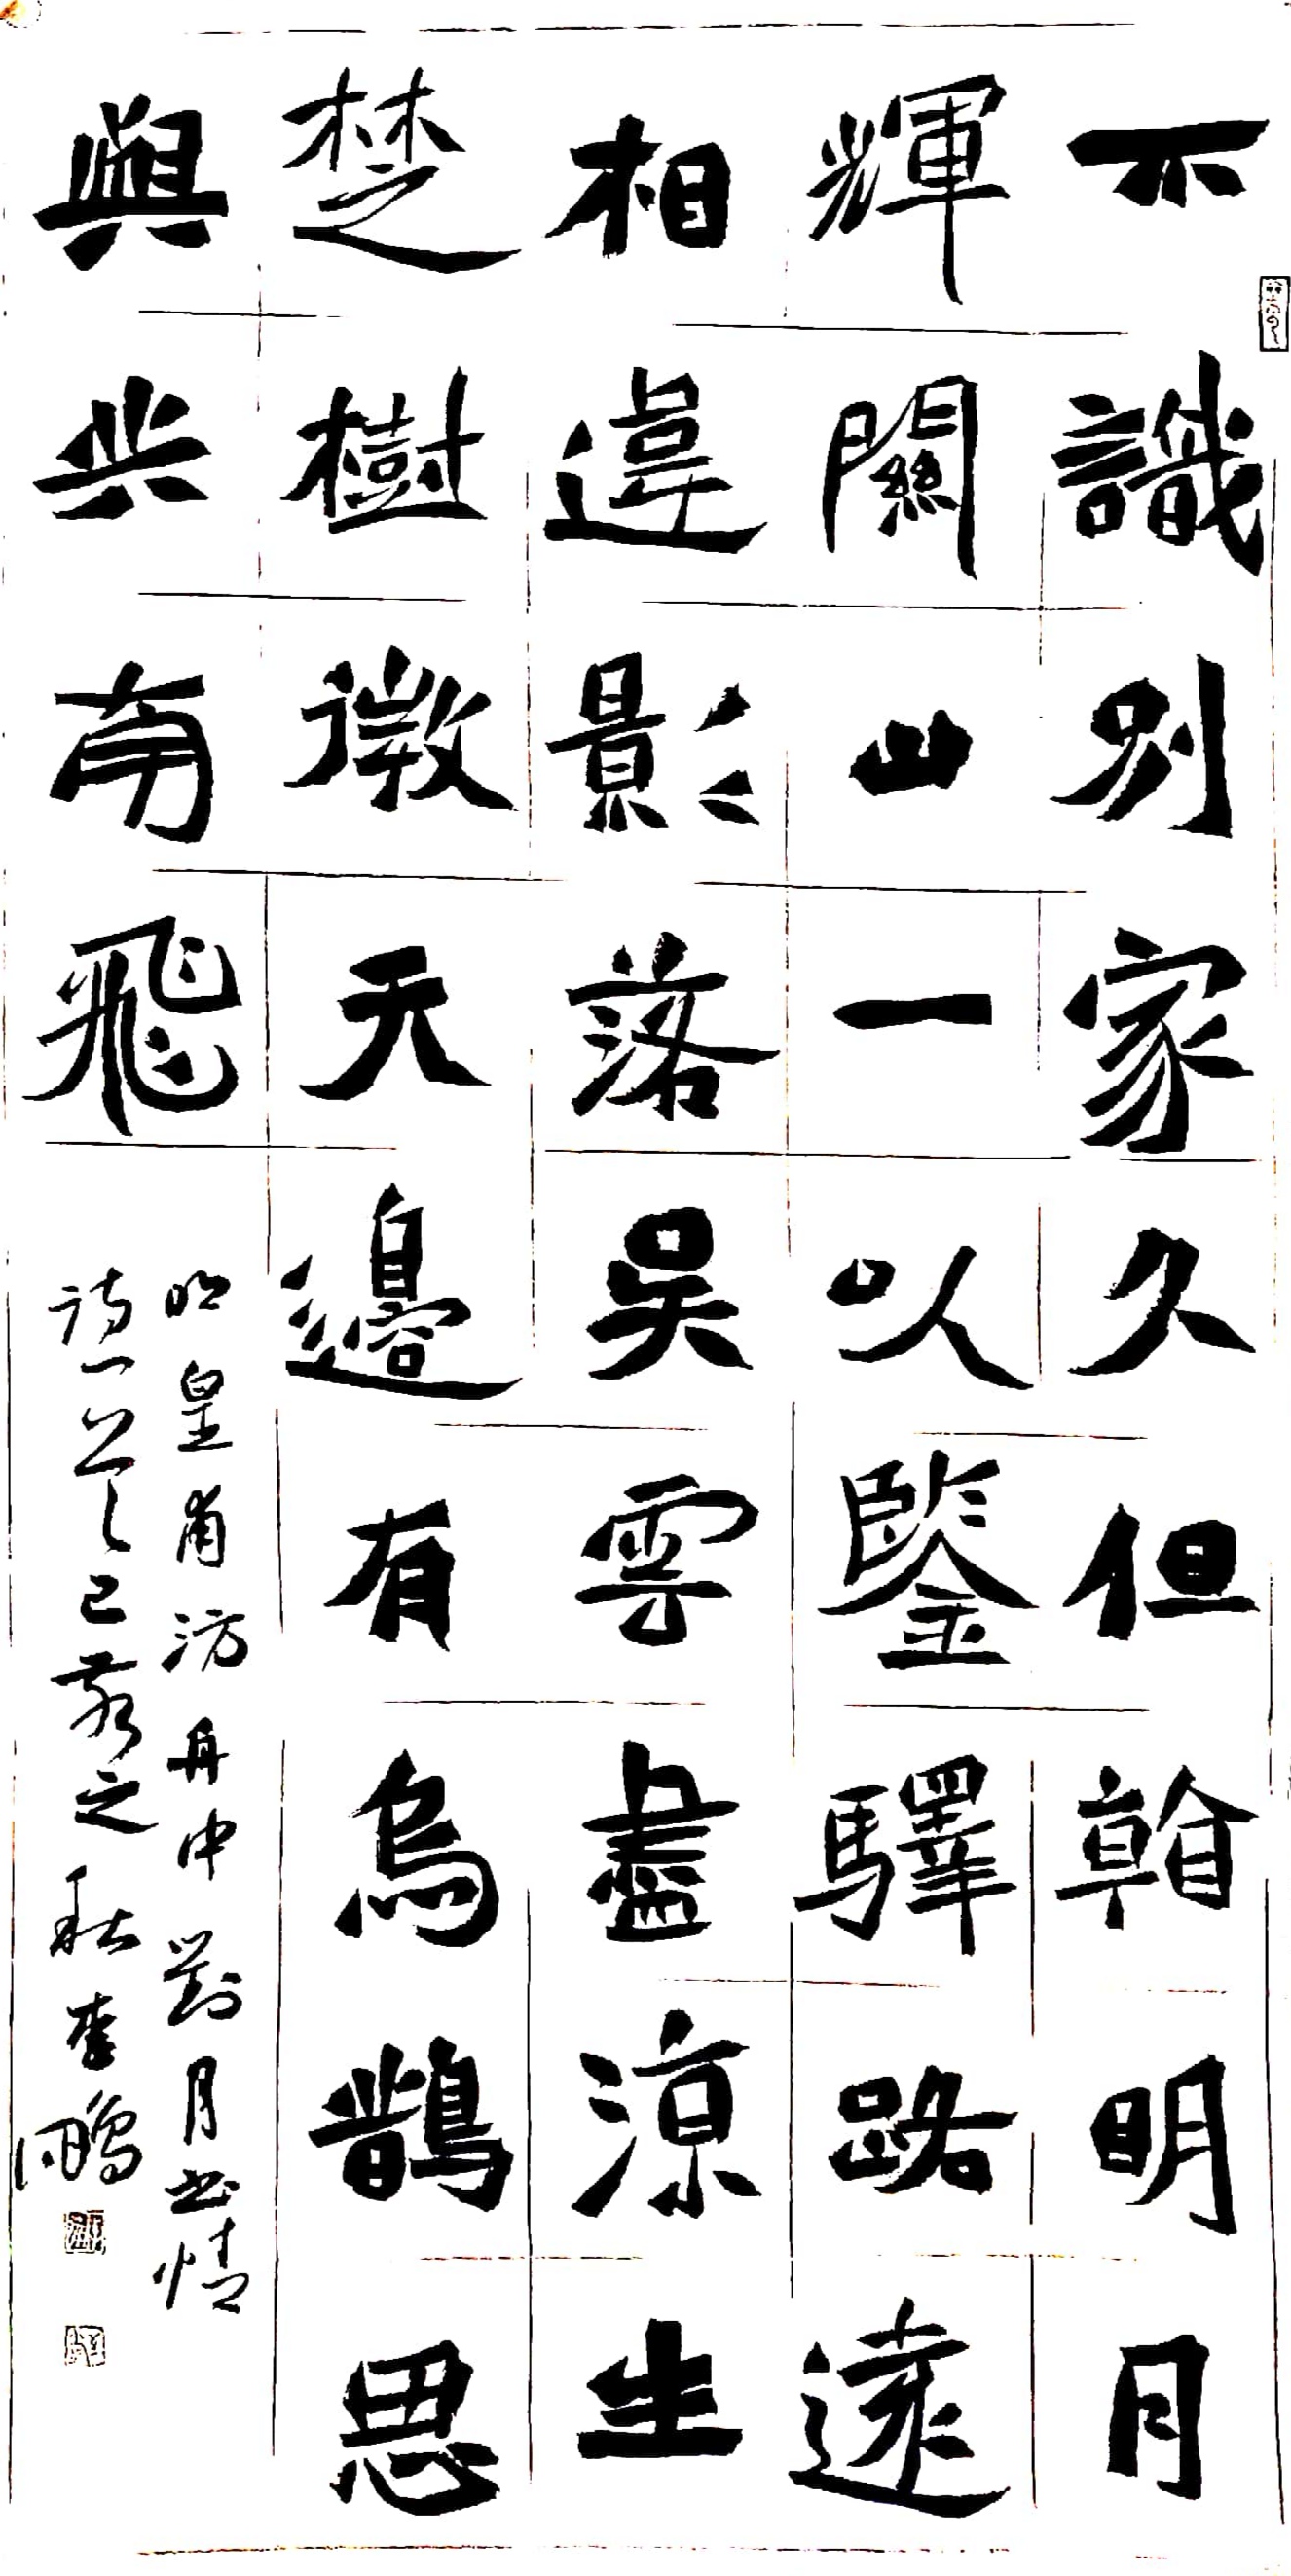 不識別家久但看明月
輝關山一以鑒驛路遠
相違影落吳雲盡涼生
楚樹微天邊有烏鵲思
與共南飛
明皇甫汸舟中對月書情
詩一首乙巳之秋李鵬